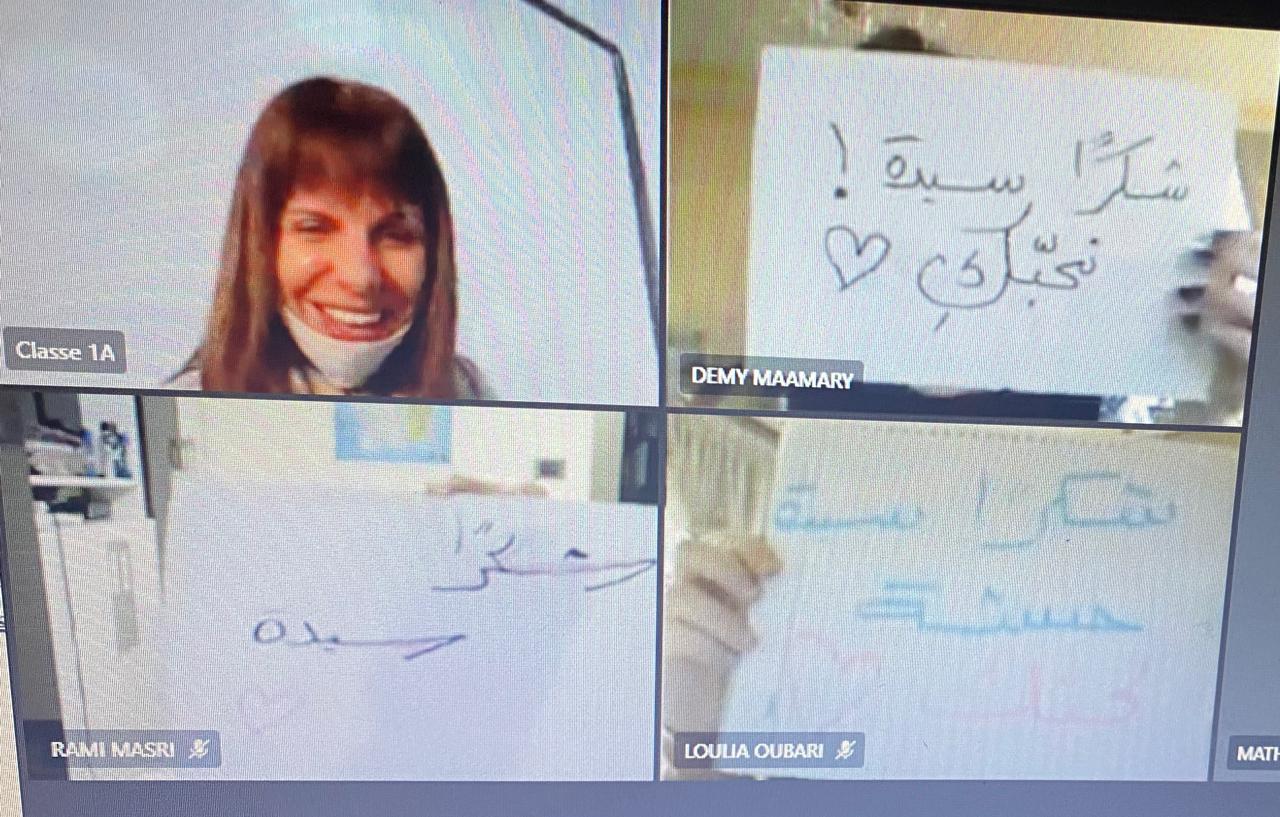 Classe 1A
شكرًا سيدة !
نحبّكِ ♡
DEMY MAAMARY
شكرًا
سيدة
RAMI MASRI
شكرا سيدة
LOULIA OUBARI
MATH